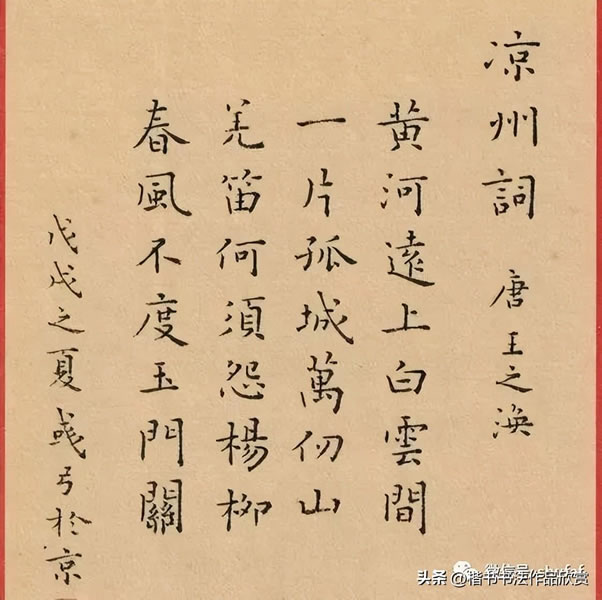 凉州詞 唐 王之渙
黄河遠上白雲間
一片孤城萬仞山
羌笛何須怨楊柳
春風不度玉門關
戊戌之夏弓於京
微信号
头条 @楷书书法作品欣赏